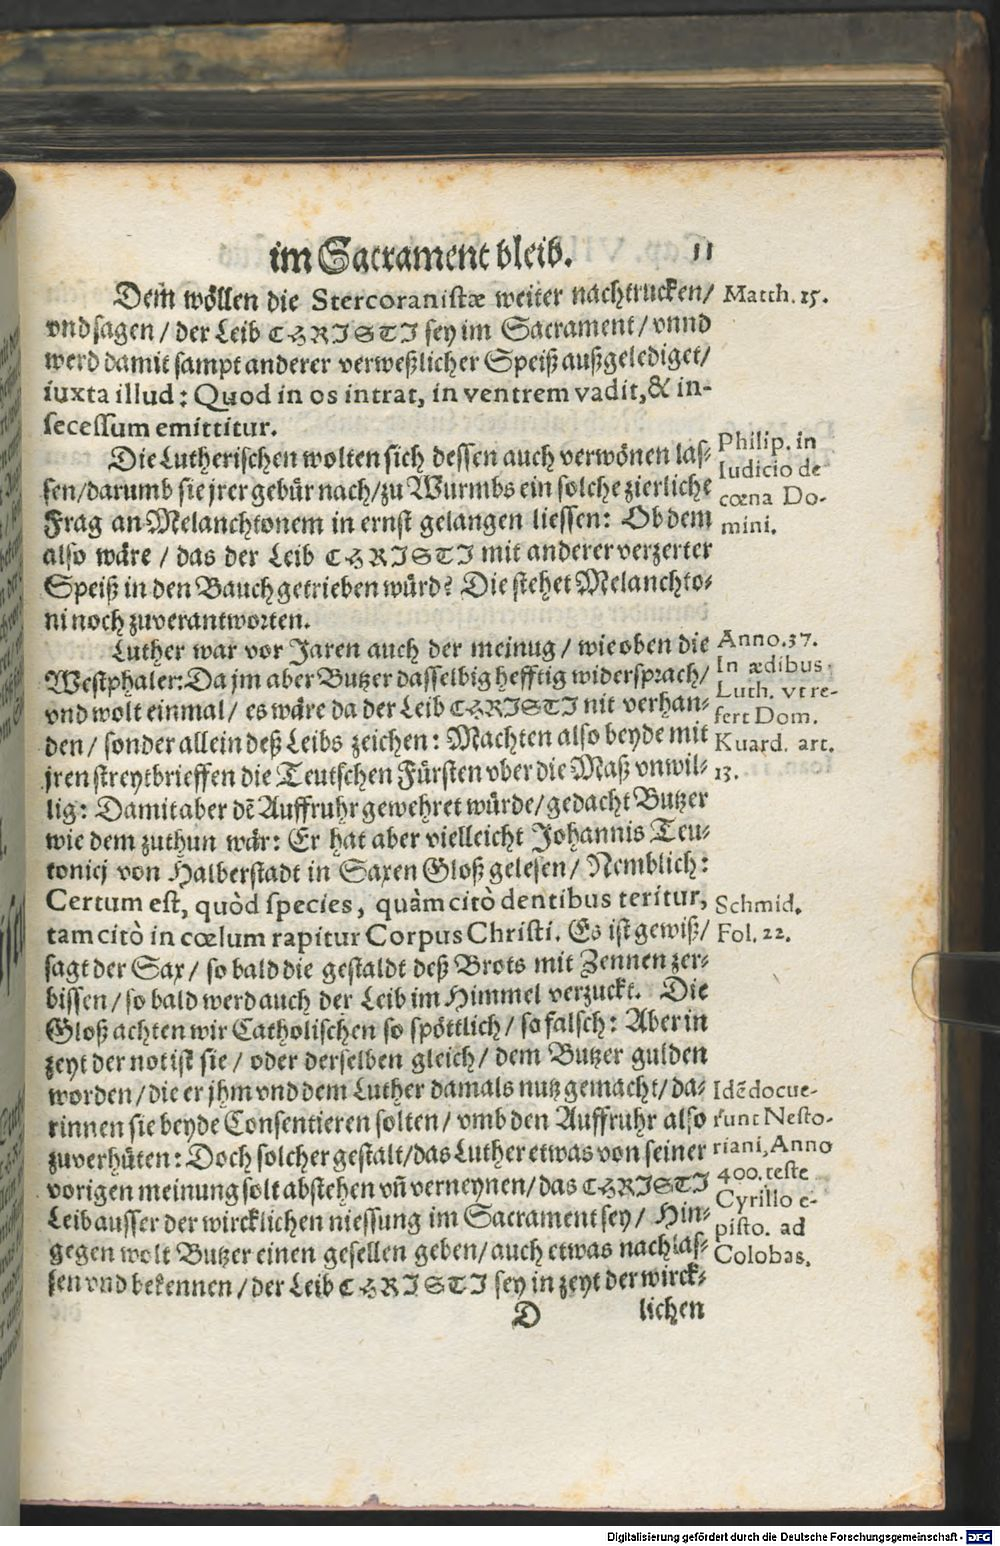 im Sacrament bleib. 11
Dem wöllen die Stercoranistæ weiter nachtrucken/
vnd sagen / der Leib CHRISTI sey im Sacrament / vnnd
werd damit sampt anderer verweßlicher Speiß außgelediget/
iuxta illud: Quod in os intrat, in ventrem vadit, & in-
secessum emittitur.
Matth. 15.
Die Lutherischen wolten sich dessen auch verwönen las-
sen/darumb sie jrer gebür nach/zu Wurmbs ein solche zierliche
Frag an Melanchtonem in ernst gelangen liessen: Ob dem
also wäre / das der Leib CHRISTI mit anderer verzerter
Speiß in den Bauch getrieben würd? Die stehet Melanchto-
ni noch zuverantworten.
Philip. in
Iudicio de
cœna Do-
mini.
Luther war vor Jaren auch der meinug / wie oben die
Westphaler: Da jm aber Butzer dasselbig hefftig widersprach/
vnd wolt einmal / es wäre da der Leib CHRISTI nit verhan-
den / sonder allein deß Leibs zeichen: Machten also beyde mit
jren streytbrieffen die Teutschen Fürsten vber die Maß vnwil-
lig: Damit aber dē Auffruhr gewehret würde/gedacht Butzer
wie dem zuthun wär: Er hat aber vielleicht Johannis Teu-
tonicj von Halberstadt in Saxen Gloß gelesen / Nemblich:
Certum est, quòd species, quàm citò dentibus teritur,
tam citò in cœlum rapitur Corpus Christi. Es ist gewiß/
sagt der Sax / so bald die gestaldt deß Brots mit Zennen zer-
bissen / so bald werd auch der Leib im Himmel verzuckt. Die
Gloß achten wir Catholischen so spöttlich / so falsch: Aber in
zeyt der not ist sie / oder derselben gleich / dem Butzer gulden
worden / die er jhm vnd dem Luther damals nutz gemacht / da-
rinnen sie beyde Consentieren solten / vmb den Auffruhr also
zuverhüten: Doch solcher gestalt/das Luther etwas von seiner
vorigen meinung solt abstehen vñ verneynen/das CHRISTI
Leib ausser der wircklichen niessung im Sacrament sey / Hin-
gegen wolt Butzer einen gesellen geben/auch etwas nachlas-
sen vnd bekennen / der Leib CHRISTI sey in zeyt der wirck-
Anno. 37.
In ædibus
Luth. vt re-
fert Dom.
Kuard. art.
13.
Schmid.
Fol. 22.
Idē docue-
runt Nesto-
riani, Anno
400. teste
Cyrillo e-
pisto. ad
Colobas.
D lichen
Digitalisierung gefördert durch die Deutsche Forschungsgemeinschaft - DFG